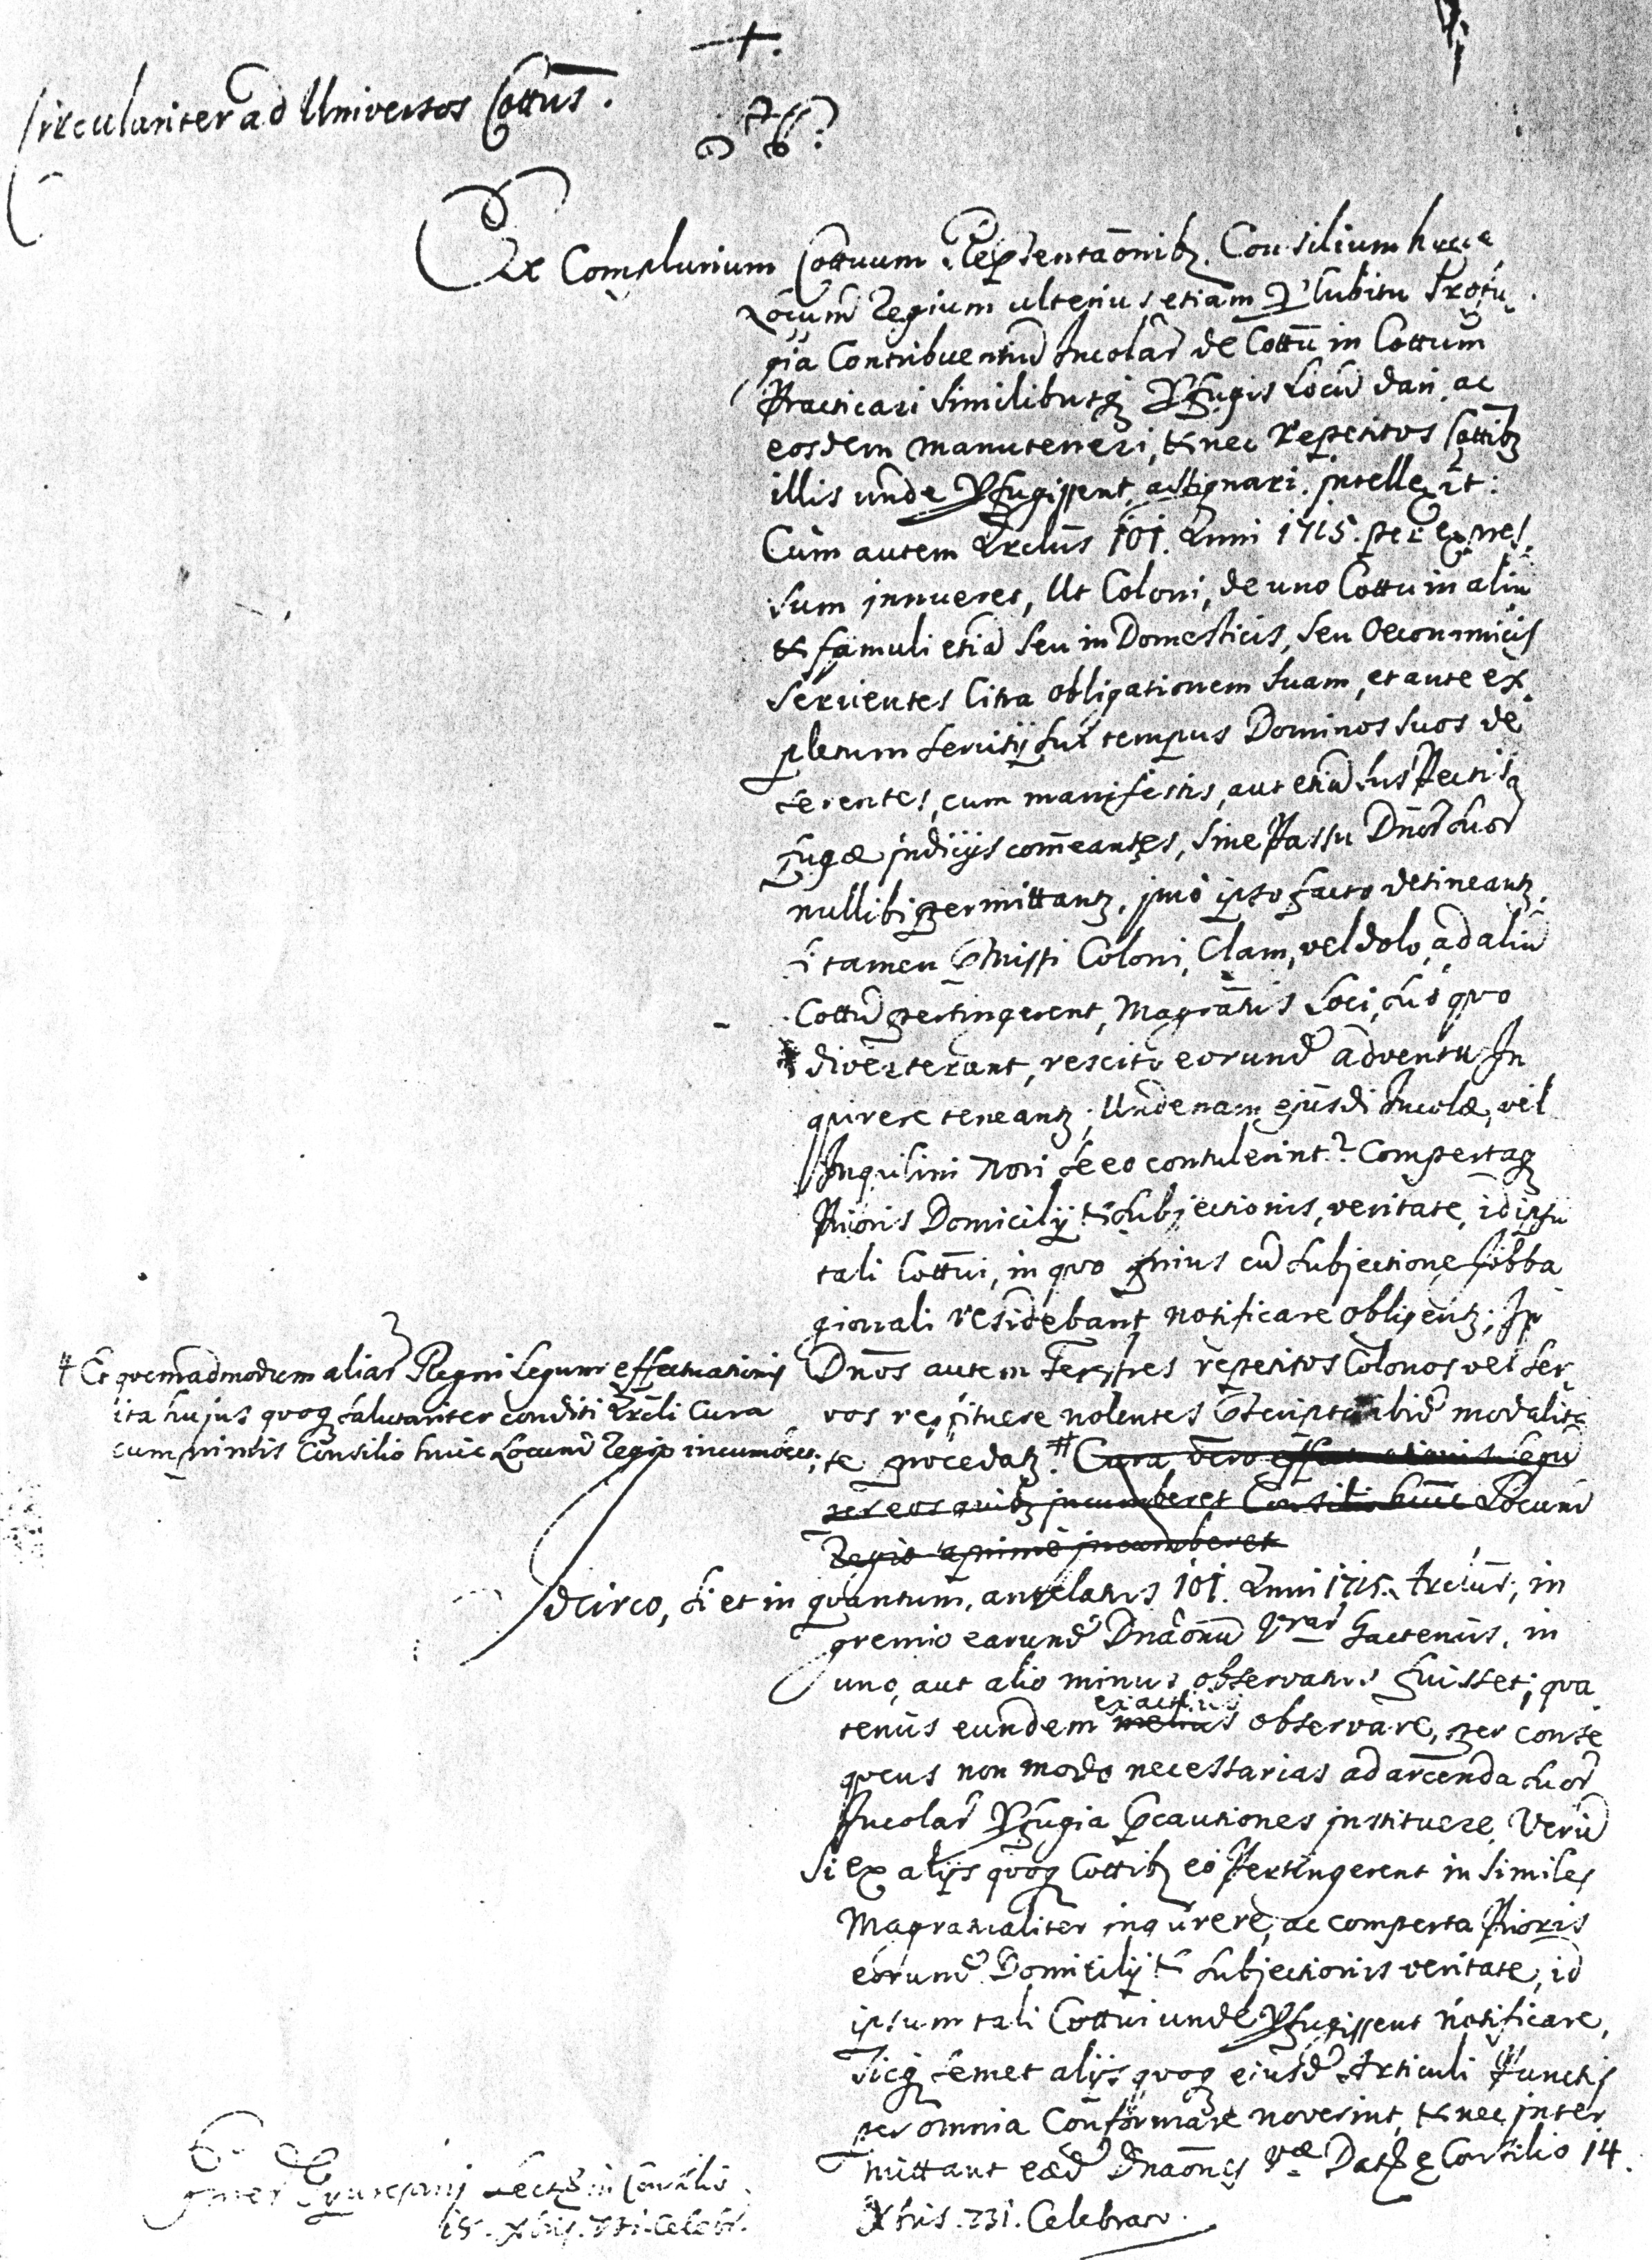 Circulariter ad Universos Cottus.
Ex Complurium Cottuum Repsentaonibz. Consilium hocce
Locumd Regium ulterius, etiam P lubitu Profu
gia Contribuentiu Incolar de Cottu in Cottum
Practicari similibusq Pfugis Locu dari, ac
eosdem manuteneri, & nec repetitos Cottibz
illis unde Pfugissent, assignari. intellexit:
Cum autem Arclus 101. Anni 1715. per expres
sum innueret, Ut Coloni, de uno Cottu in aliu
& famuli etia seu in Domesticis, seu Oeconomicis
servientes citra obligationem suam, et ante ex
pletum servitij sui tempus Dominos suos de
serentes, cum manifestis, aut etia suspectis
fugæ indicijs comeantes, sine Passu Dnor suor
nullibi permittantz, imo ipso facto detineantz.
si tamen pmissi Coloni, Clam, vel dolo, ad aliu
Cottu pertingerent, Magratus Loci, suo quo
diverterant, rescito eorund adventu In
quirere teneantz; Undenam ejusdi Incolæ, vel
Inquilini novi se eo contulerint? Compertaq
Prioris Domicilij & subjectionis, veritate, id ipsu
tali Cottui, in quo prius cu subjectione Jobba
gionali residebant notificare obligentz; In
Dnos autem Terrestres repetitos Colonos vel ser
vos restituere nolentes pscripta ibid modalita
te procedatz. # Cura vero effectuationis legu
per eos quibz incumberet Consilio huic Locumd
Regio apprime incumberet
# Et quemadmodum aliar Regni Legum effectuationis
ita hujus quoq salutariter conditi Arcli Cura
cumprimis Consilio huic Locumd Regio incumberet;
Idcirco, si et in quantum, antelatus 101. Anni 1715. Arclus, in
gremio earund Dnaonu Vrar hactenus, in
uno, aut alio minus observatus fuisset; qua
tenus eundem melius exactius observare, per conse
quens non modo necessarias ad arcenda suor
Incolar Pfugia pcautiones instituere, Veru
si ex alijs quoq Cottibz eo Pertingerent in similes
Magratualiter inqurere, ac comperta Prioris
eorund Domicilij & subjectionis veritate, id
ipsum tali Cottui unde Pfugissent notificare,
sicq semet alijs quoq eiusd Articuli Punctis
per omnia Conformare noverint, & nec inter
mittant eæd Dnaones Væ Datz e Consilio 14.
Xbris. 731. Celebrato.
Lectz in Consilio
15. Xbris. 731. Celebr.